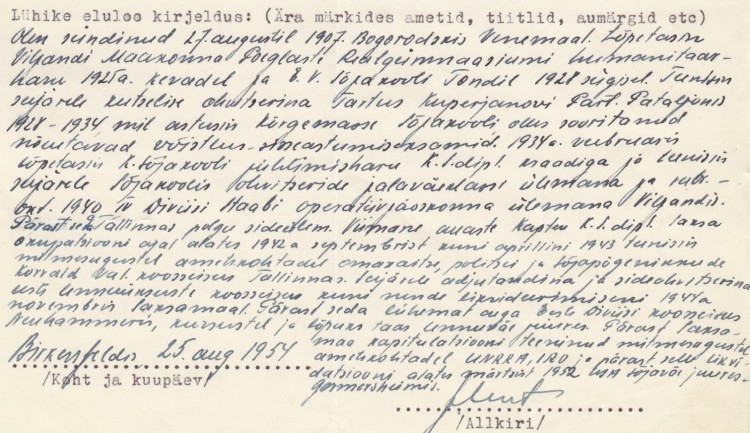 Lühike eluloo kirjeldus: (Ära märkides ametid, tiitlid, aumärgid etc)
Olen sündinud 27. augustil 1907. Bogorodskis Venemaal. Lõpetasin
Viljandi Maakonna Poeglaste Realgümnaasiumi humanitaar-
haru 1925 a. kevadel ja E.V. Sõjakooli Tondil 1928 sügisel. Teenisin
seejärele kutselise ohvitserina Tartus Kuperjanovi Part. Pataljonis
1928-1934 mil astusin Kõrgemasse Sõjakooli olles sooritanud
nõuetavad võistlus-sisseastumiseksamid. 1934 a. veebruaris
lõpetasin K. Sõjakooli juhtimisharu K.S.dipl. kraadiga ja teenisin
seejärele Sõjakoolis ohvitseride jalaväeklassi ülemana ja
okt. 1940 IV Diviisi Staabi operatiivjaoskonna ülemana Viljandis.
Pärast seda Tallinnas polgu sideülem. Viimane auaste Kapten K.S.dipl. Saksa
okupatsiooni ajal alates 1942 a septembrist kuni aprillini 1943 teenisin
mitmesugustel ametkohtadel omakaitse, politsei ja sõjapõgenikkude
korrald. Val. koosseisus Tallinnas. Seejärele adjutandina ja sideohvitserina
eesti lennuüksuste koosseisus kuni nende likvideerimiseni 1944 a
novembris Saksamaal. Pärast seda lühemat aega Eesti Diviisi koosseisus
Neuhammeris, kursustel ja lõpuks taas lennuväe juures. Pärast Saksa-
maa kapitulatsiooni teeninud mitmesugustel
ametkohtadel UNRRA, IRO ja pärast selle likvi-
datsiooni alates märtsist 1952 USA Sõjaväe juures
Germersheimis.
Birkenfeldis 25. aug 1954
/Koht ja kuupäev/
/Allkiri/